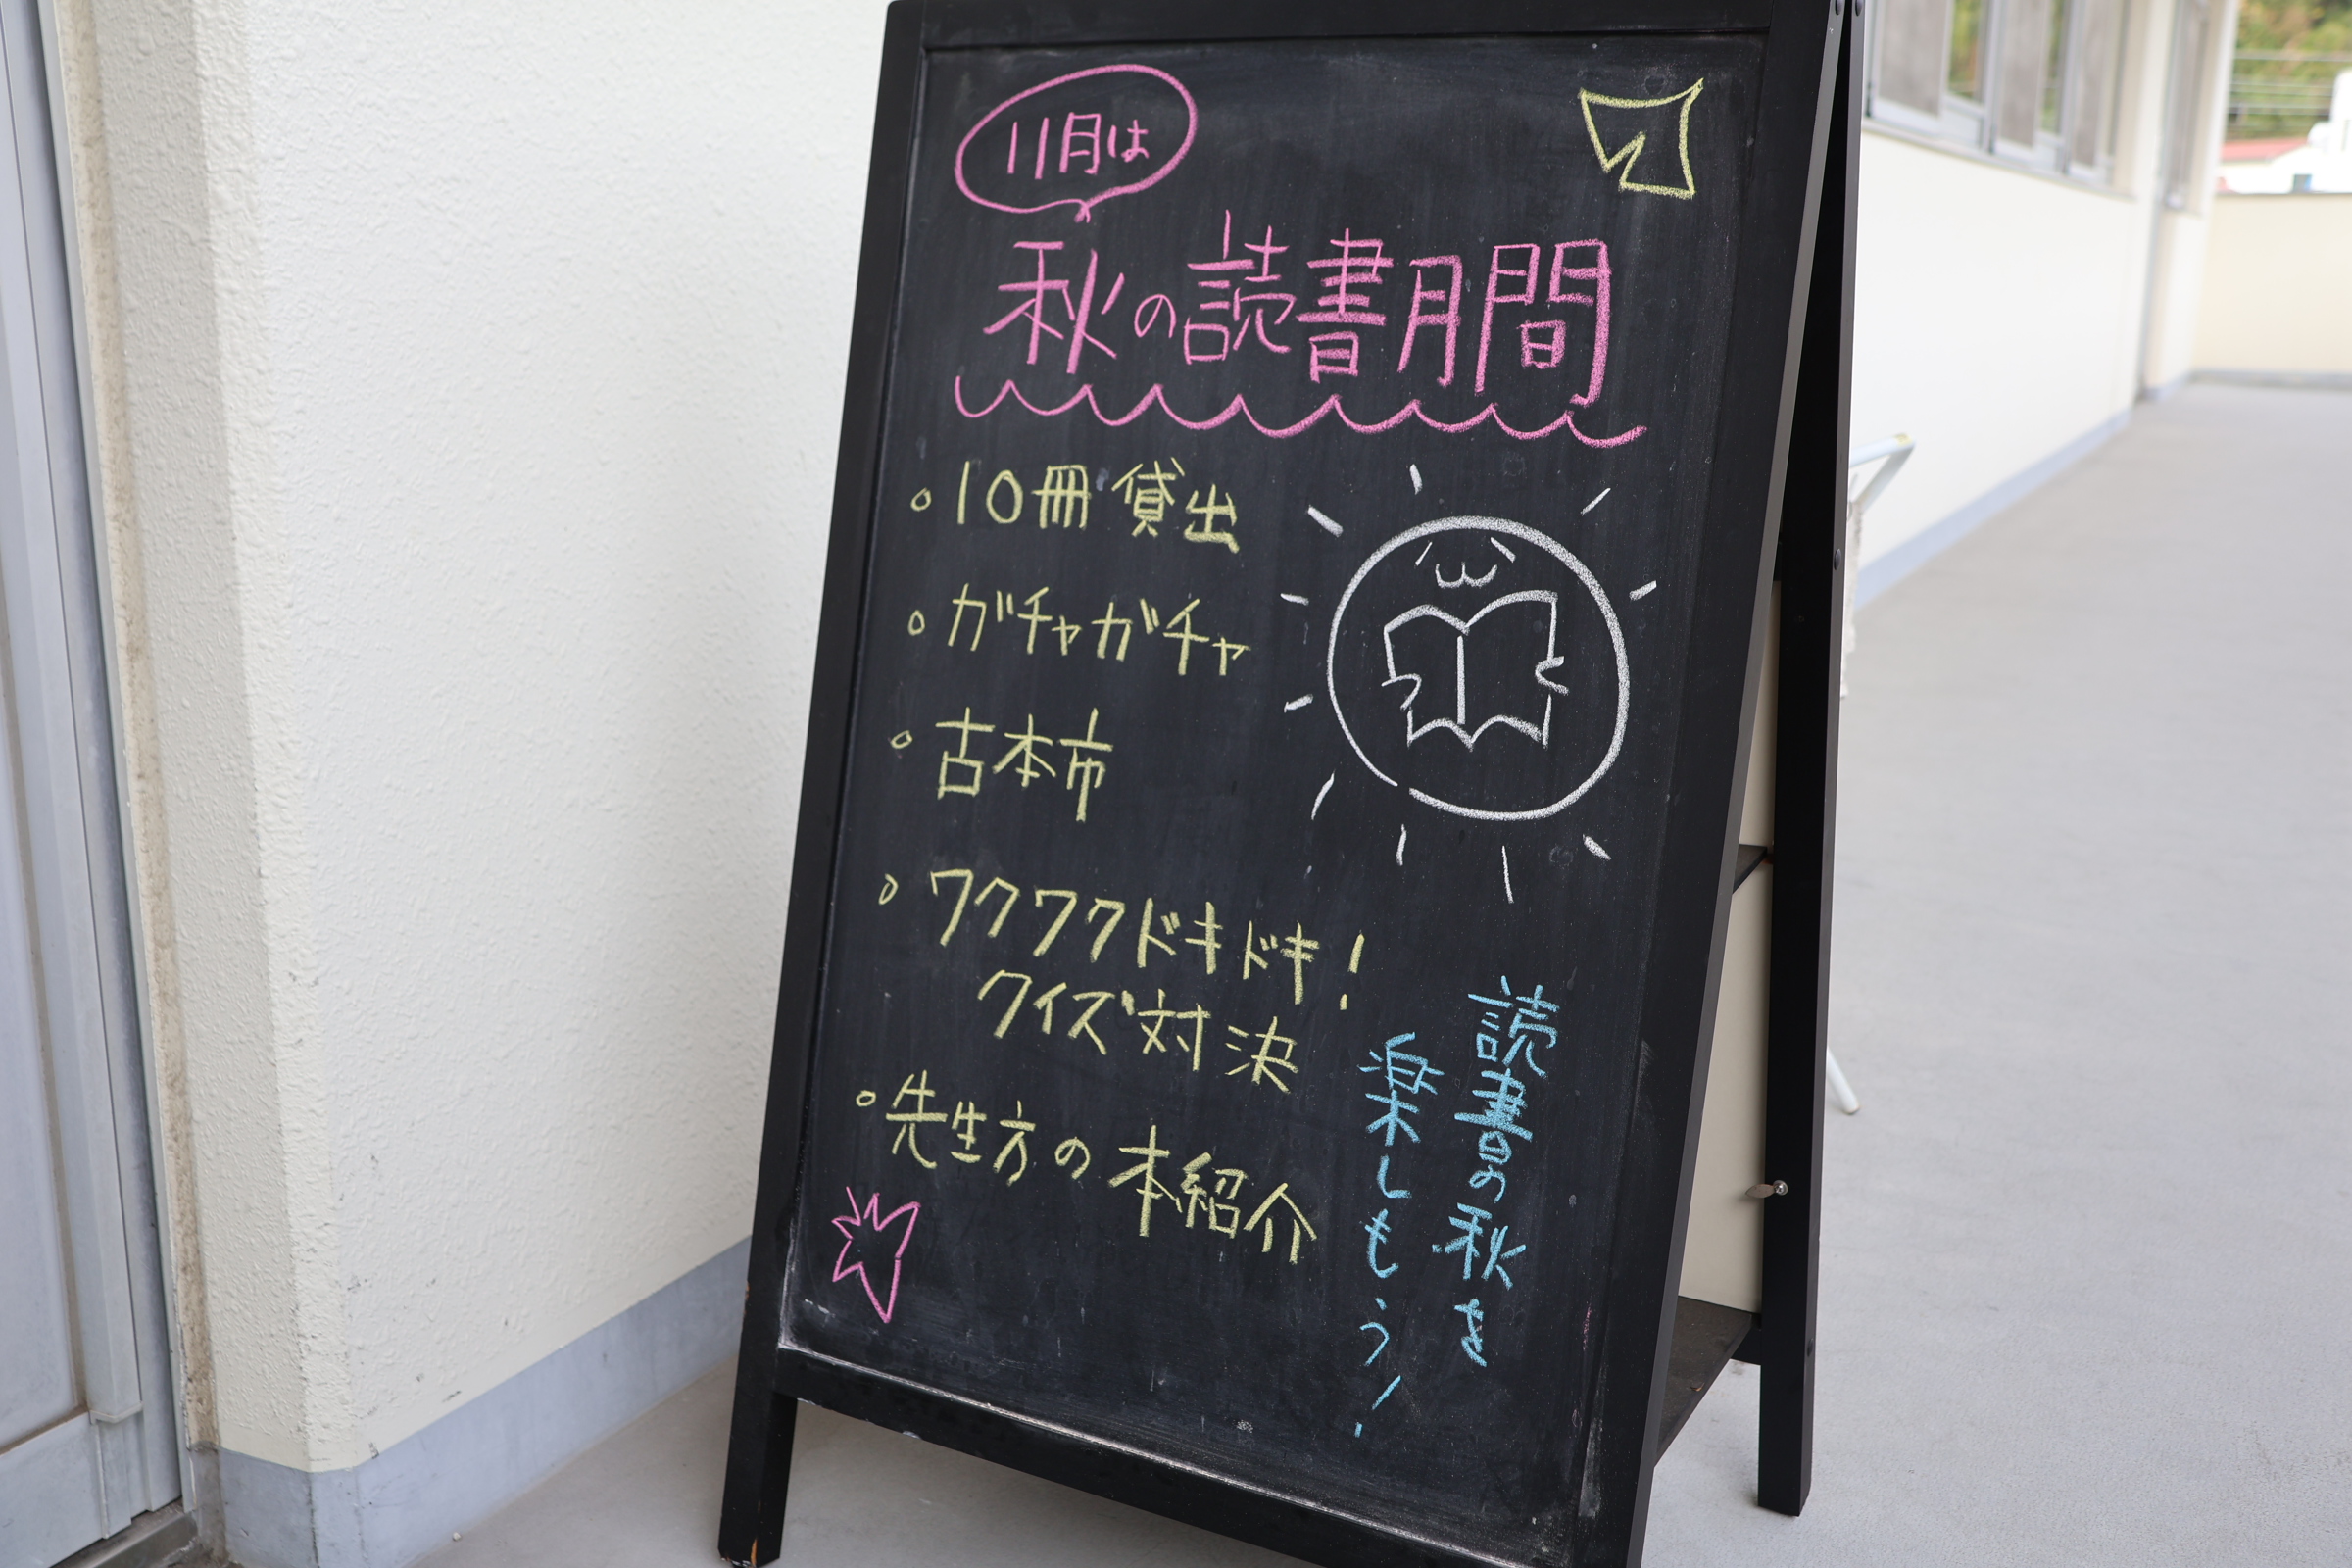 11月は
秋の読書月間
○10冊貸出
○ガチャガチャ
○古本市
○ワクワクドキドキ!
クイズ対決
○先生方の本紹介
読書の秋を
楽しもう!